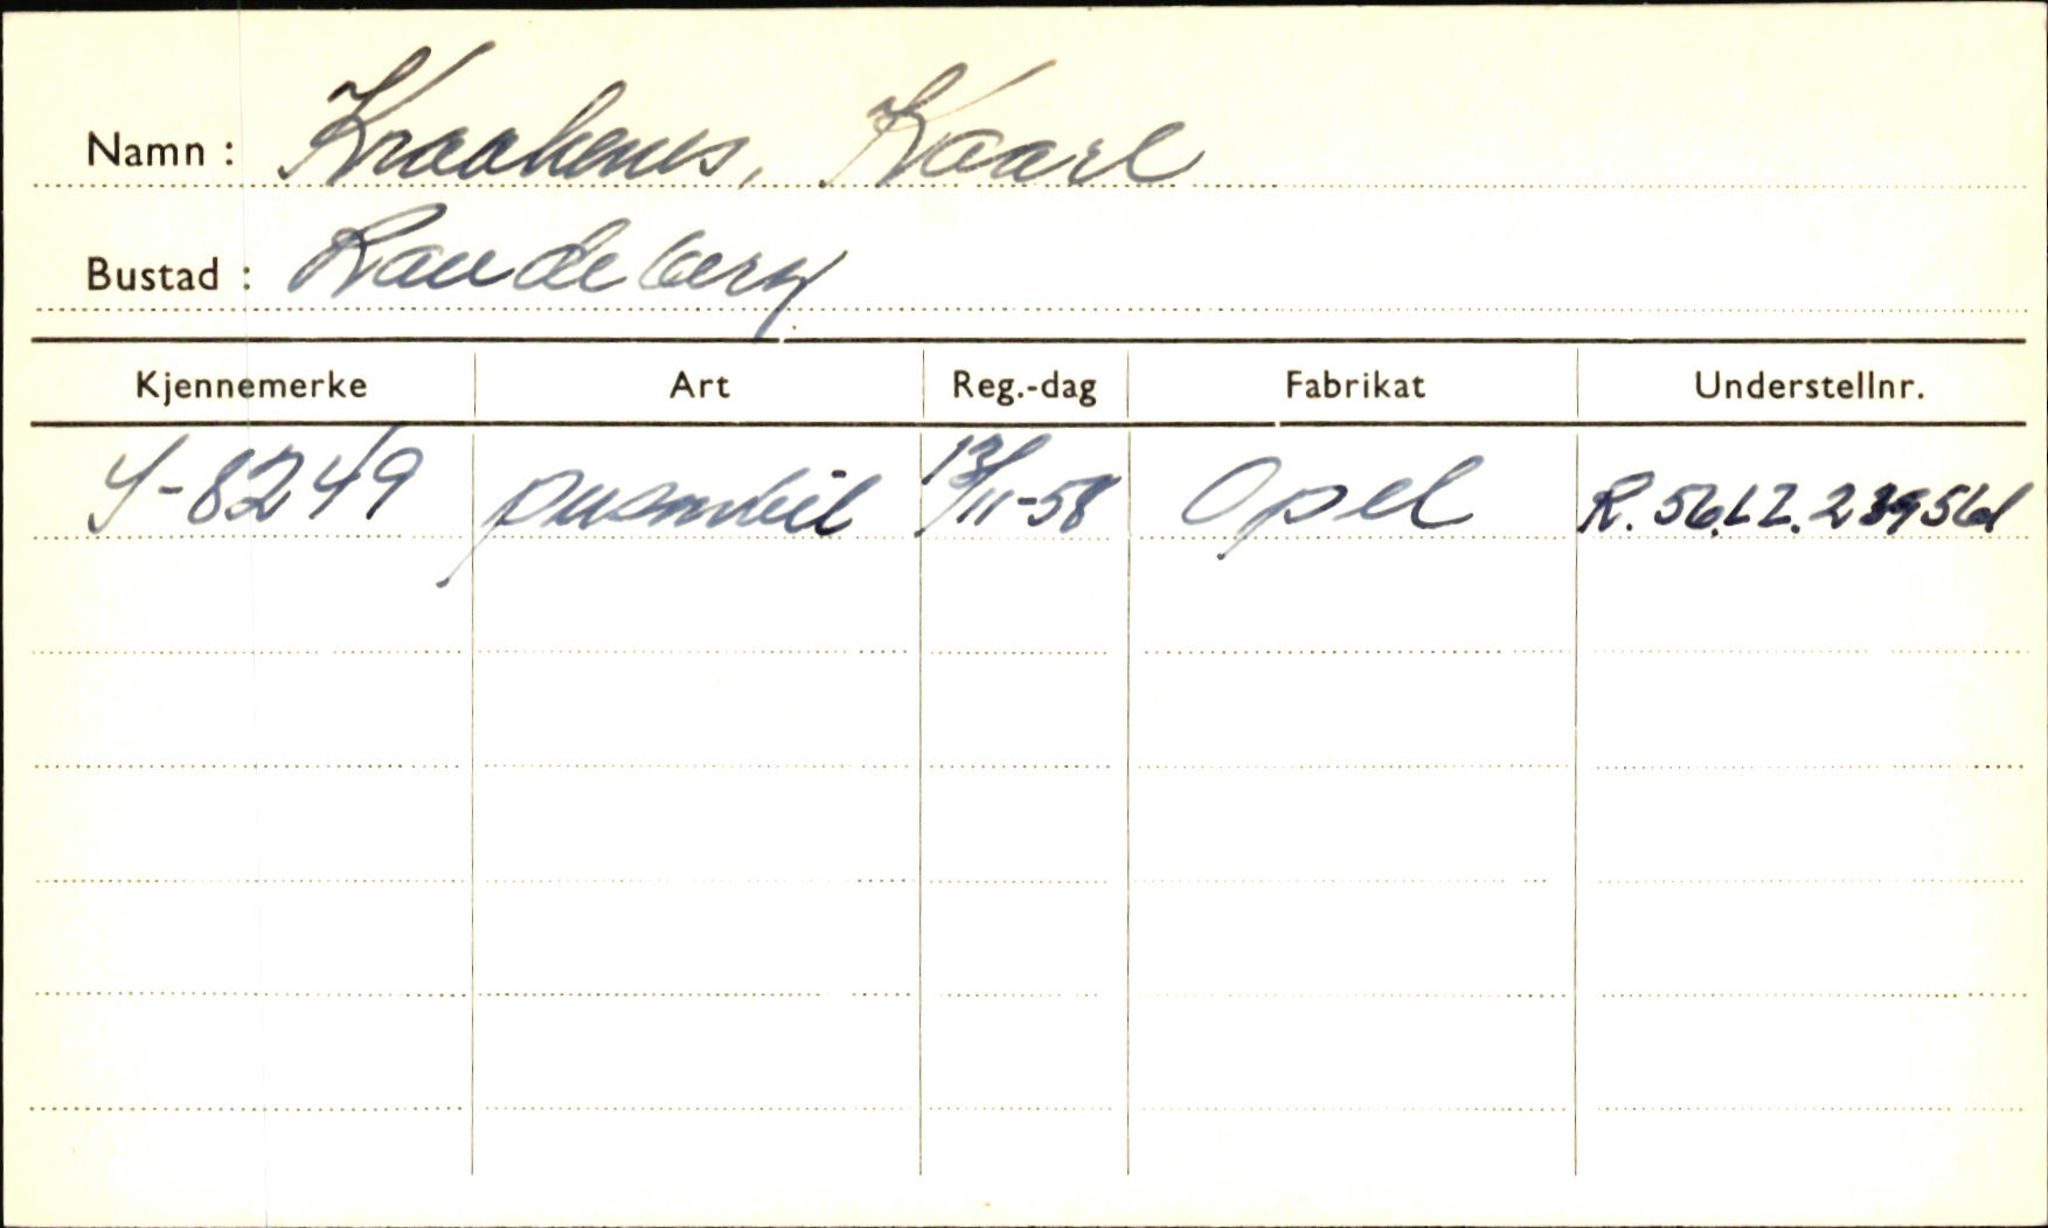 Namn : Kraakenes, Kaare
Bustad : Raudeberg
Kjennemerke Art Reg.-dag Fabrikat Understellnr.
S-8249 personbil 13/11-58 Opel